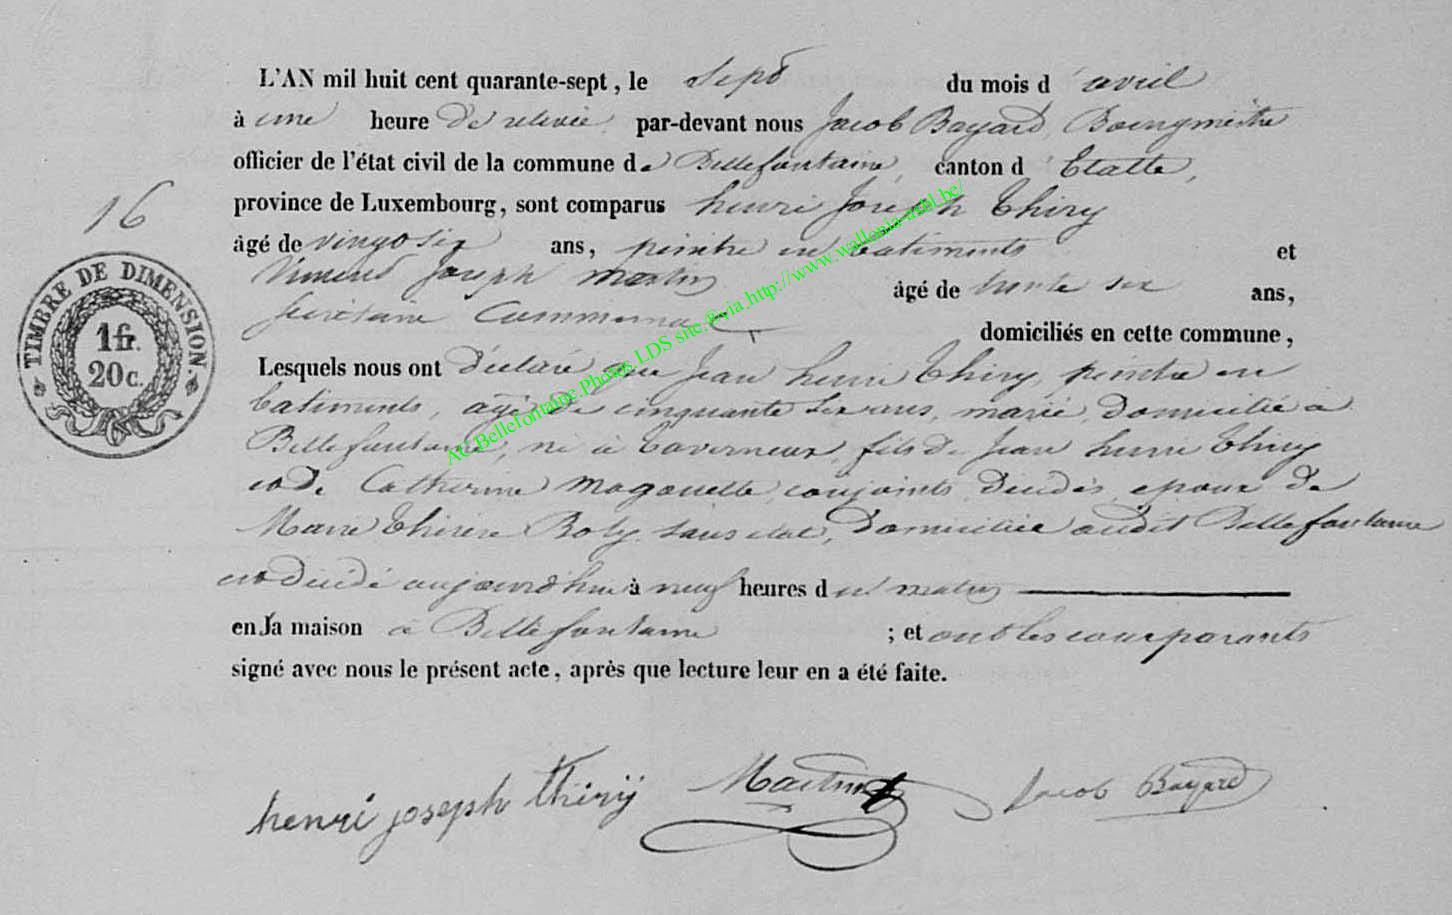 L'AN mil huit cent quarante-sept, le sept du mois d'avril
à une heure de relevée par-devant nous Jacob Bayard, Bourgmestre
officier de l'état civil de la commune de Bellefontaine, canton d'Etalle,
16
province de Luxembourg, sont comparus henri Joseph Thiry
âgé de vingt six ans, peintre en batiments et
Joseph Martin âgé de trente six ans,
secrétaire Communal domiciliés en cette commune,
TIMBRE DE DIMENSION.
1 fr.
20 c.
Lesquels nous ont déclaré que Jean henri Thiry peintre en
batiments, agé de cinquante six ans, marié, domicilié à
Bellefontaine, né à taverneux, fils de Jean henri Thiry
et de Catherine Magonette conjoints décédés, epoux de
Marie Thérèse Roby sans etat, domiciliée audit Bellefontaine
est décédé aujourd'hui à neuf heures du matin
en la maison à Bellefontaine ; et ont les comparants
signé avec nous le présent acte, après que lecture leur en a été faite.
henri joseph thirÿ Martin Jacob Bayard
Ac Bellefontaine.Photos LDS site @via.http://www.wallonia-asbl.be/